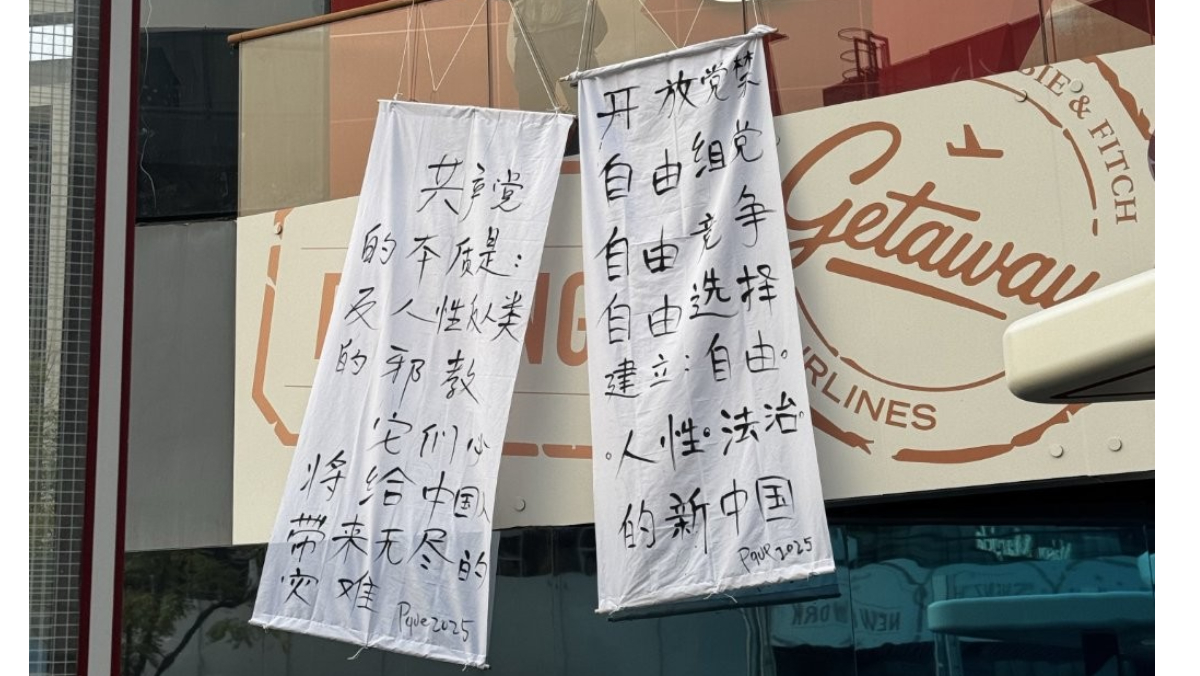 共产党
的本质是:
反人性反人类
的邪教
它们必
将给中国人
带来无尽的
灾难
Pque 2025
开放党禁
自由组党
自由竞争
自由选择
建立:自由。
。人性。法治。
的新中国
Pque 2025
BIE & FITCH
Getaway
RLINES
NG
NEW YORK